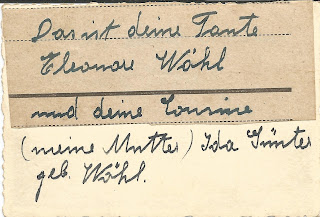 Das ist deine Tante
Eleonore Wöhl
und deine Cousine
(meine Mutter) Ida Günter
geb. Wöhl.